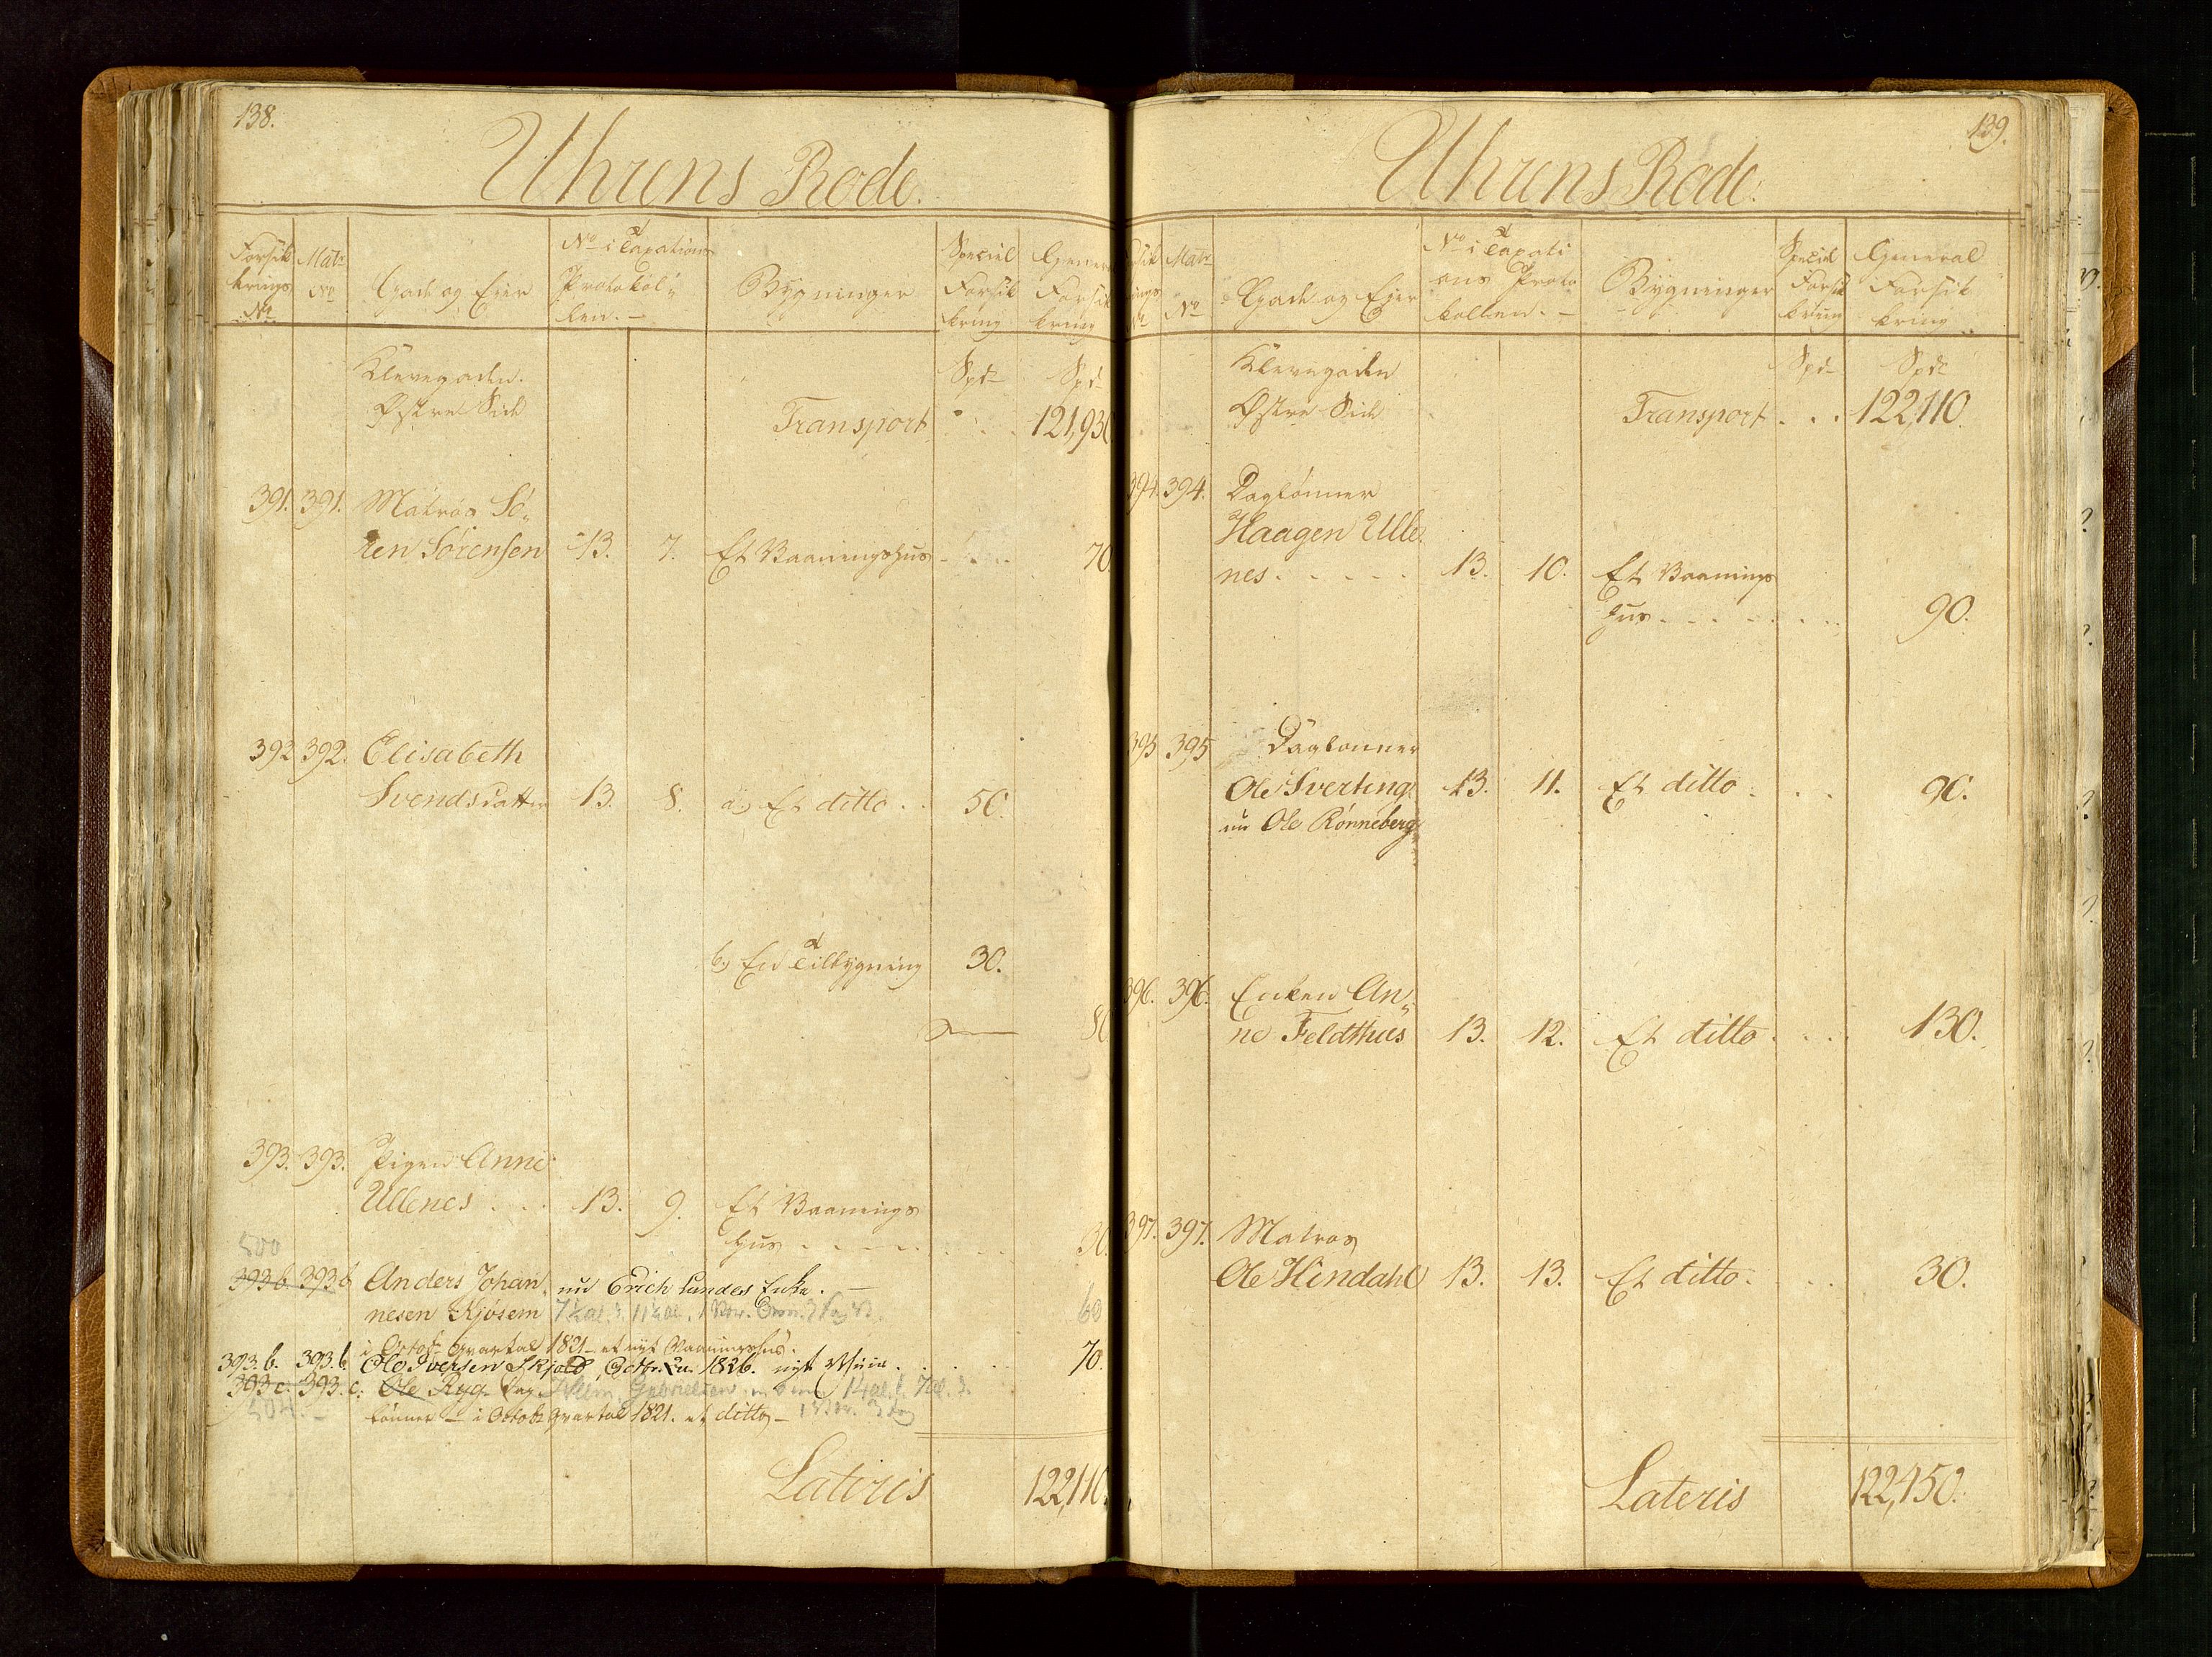 138.
Uhrens Rode.
Forsik
krings
No
Matr
No
Gade og Eier
No i Taxations
Protokol-
len.
Bygninger
Speciel
Forsik
kring
Gener
Forsik
kring
Klevegaden.
Østre Side
Spd
Spd
Transport
121,930
391. 391. Matros Sö-
ren Sörensen 13. 7. Et Vaaningshus 70.
392 392. Elisabeth
Svendsdatter 13. 8. a) Et ditto . . 50.
b) En Tilbygning 30.
80.
393. 393. Pigen Anne
Ullenes . . . 13. 9. Et Vaanings
hus . . . . 30.
500
393b. 393b Anders Johan- nu Erich Lundes Enke.
nesen Kjösem 60
i Octob Qvartal 1821 et nyt Vaaningshus.
393.b. 393.b Ole Iversen Skjold, Octbr. Qu. 1826. nyt Vhuus. . . . 70.
393c. 393.c. Ole Ryg Dag- Gabrielsen
lönner – i Octob Qvartal 1821. et ditto –
Lateris 122,110.
139.
Uhrens Rode.
Matr
No
Gade og Eier
No i Taxati
ons Proto
kollen.
Bygninger
Speciel
Forsik
kring
General
Forsik
kring
Klevegaden
Østre Side
Spd
Spd
Transport . . . 122,110.
394. 394. Daglönner
Haagen Ulle
nes . . . . . 13. 10. Et Vaanings
hus . . . . . . 90.
395 395 Daglönner
Ole Sverting 13. 11. Et ditto . . . 90.
nu Ole Rönneberg
396. 396. Enken An-
ne Feldthus 13. 12. Et ditto . . . 130.
397. 397. Matros
Ole Hindahl 13. 13. Et ditto . . . 30.
Lateris 122,450.